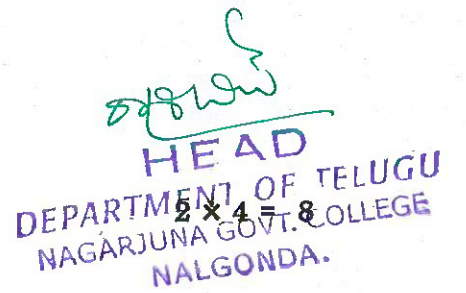 HEAD
DEPARTMENT OF TELUGU
2 × 4 = 8
NAGARJUNA GOVT. COLLEGE
NALGONDA.